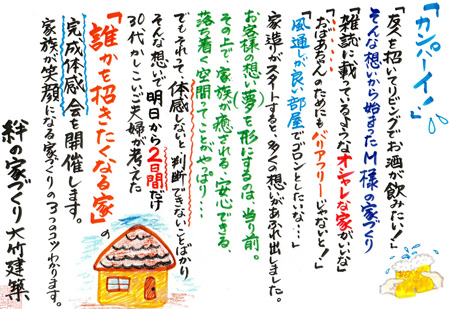 「カンパーイ！」
「友人を招いてリビングでお酒が飲みたい！」
そんな想いから始まったM様の家づくり
「雑誌に載っているようなオシャレな家がいいな」
「おばあちゃんのためにもバリアフリーじゃないと！」
「風通しが良い部屋でゴロンとしたいな…」
家造がスタートすると、多くの想いがあふれ出ました。
お客様の想い(夢)を形にするのは、当り前。
その上で、家族が癒される、安心できる、
落ち着く空間ってことがやっぱり…
でもそれって、体感しないと判断できないことばかり
そんな想いで明日から2日間だけ
30代かしこいご夫婦が考えてた
「誰かを招きたくなる家」の
完成体感会を開催します。
家族が笑顔になる家づくりの3つのコツわかります。
絆の家づくり大竹建築